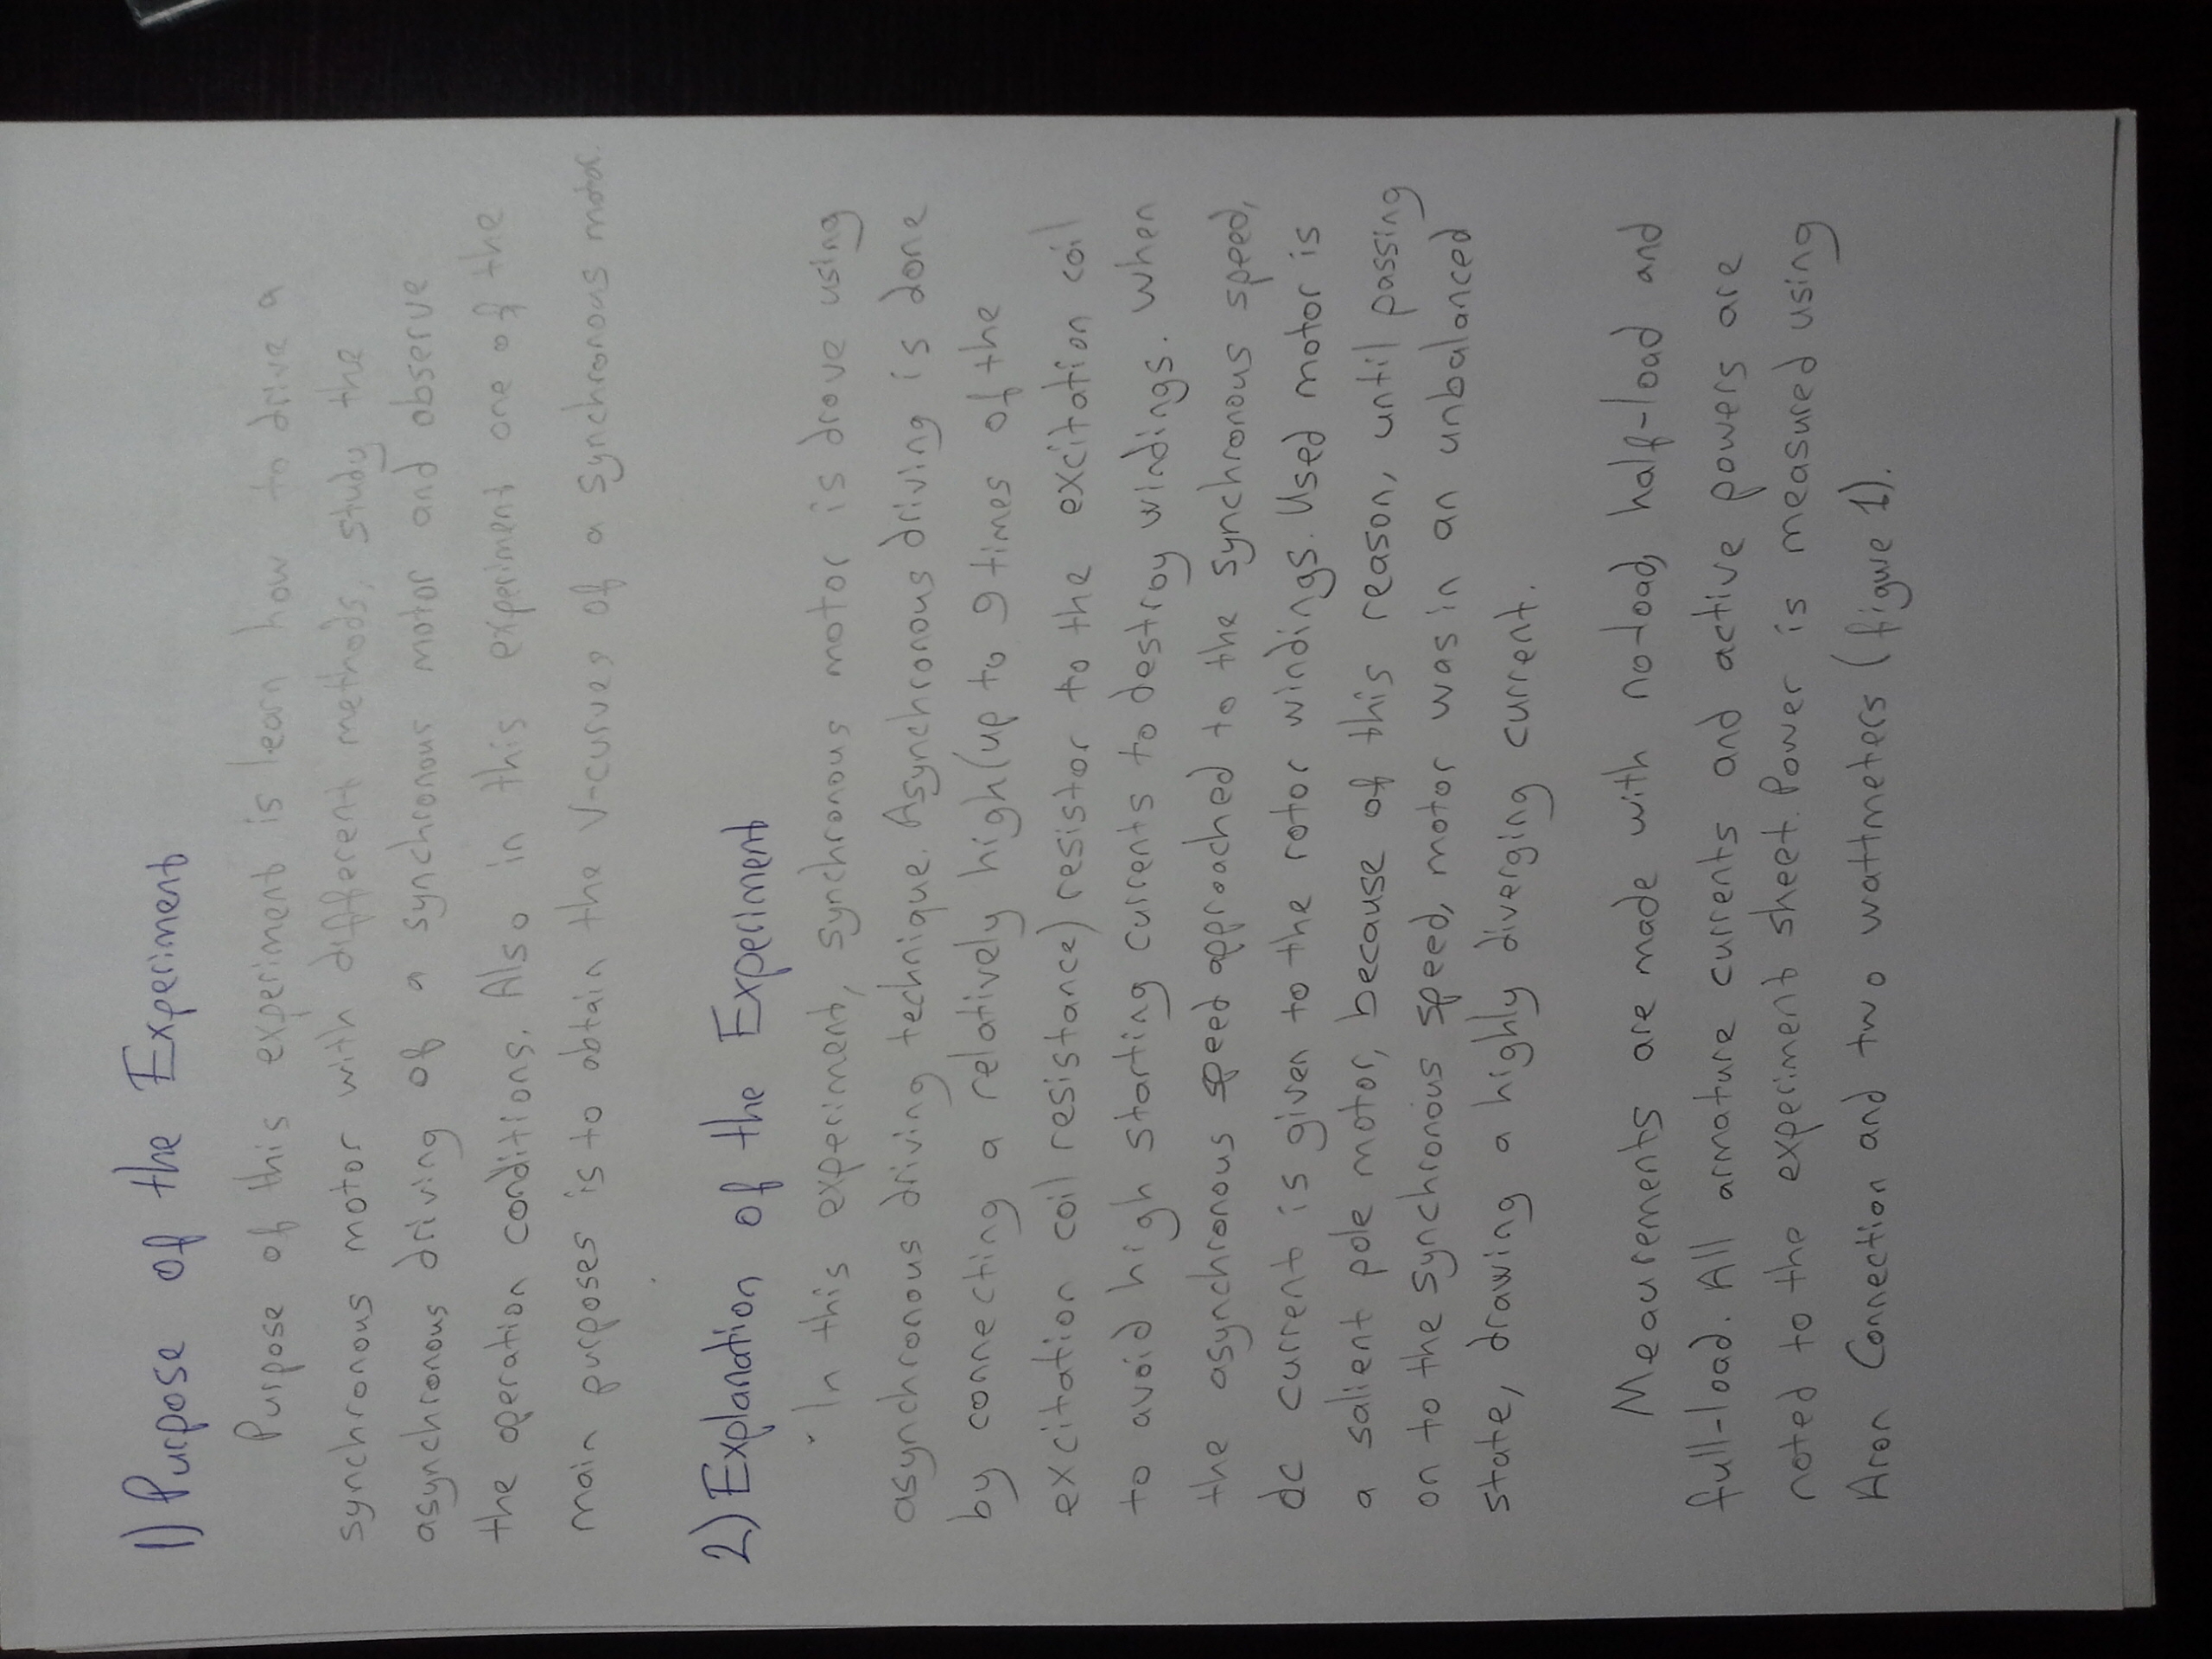 1) Purpose of the Experiment
Purpose of this experiment is learn how to drive a
synchronous motor with different methods, study the
asynchronous driving of a synchronous motor and observe
the operation conditions. Also in this experiment one of the
main purposes is to obtain the V-curves of a synchronous motor.
2) Explanation of the Experiment
In this experiment, synchronous motor is drove using
asynchronous driving technique. Asynchronous driving is done
by connecting a relatively high (up to 9 times of the
excitation coil resistance) resistor to the excitation coil
to avoid high starting currents to destroy windings. When
the asynchronous speed approached to the synchronous speed,
dc current is given to the rotor windings. Used motor is
a salient pole motor, because of this reason, until passing
on to the synchronious speed, motor was in an unbalanced
state, drawing a highly diverging current.
Meaurements are made with no-load, half-load and
full-load. All armature currents and active powers are
noted to the experiment sheet. Power is measured using
Aron Connection and two wattmeters (figure 1).